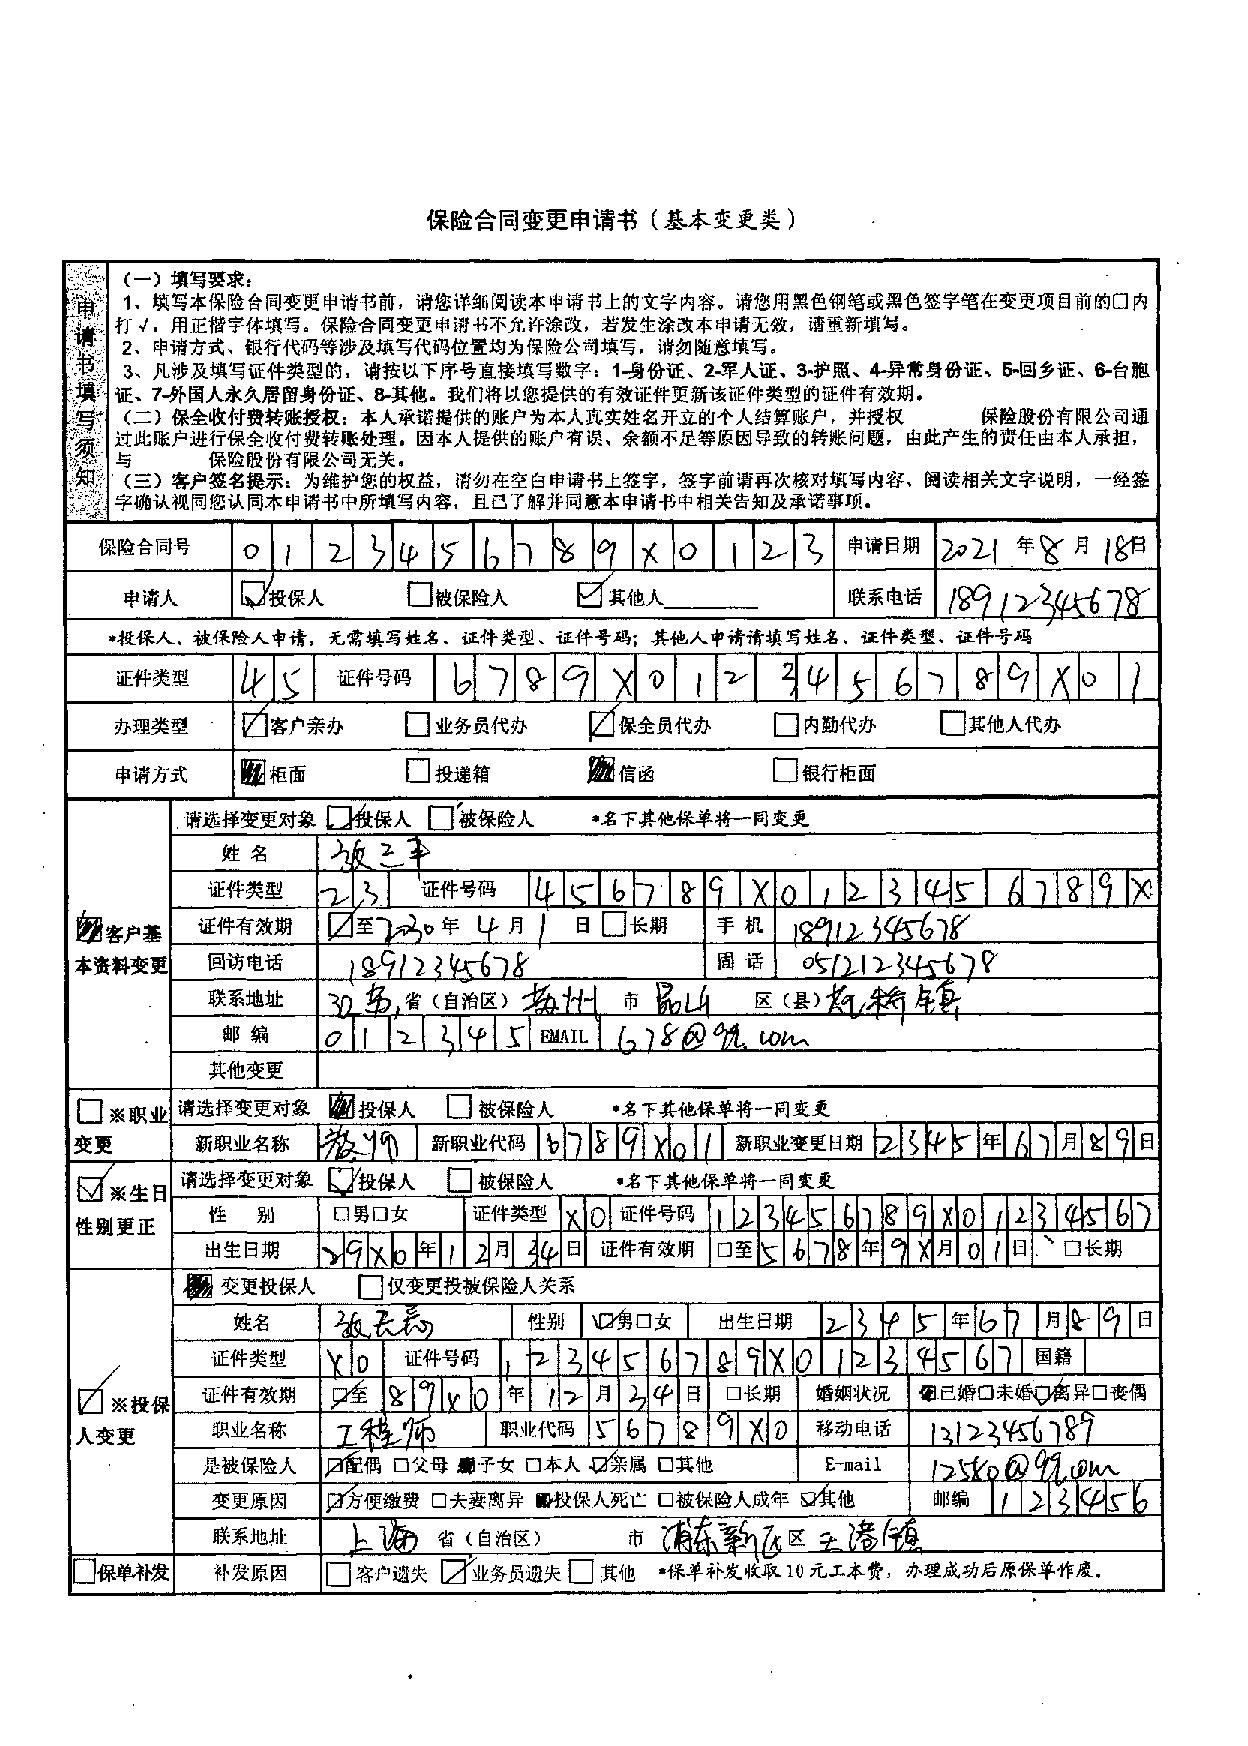 保险合同变更申请书（基本变更类）
申请书填写须知
（一）填写要求：
1、填写本保险合同变更申请书前，请您详细阅读本申请书上的文字内容。请您用黑色钢笔或黑色签字笔在变更项目前的□内
打√，用正楷字体填写。保险合同变更申请书不允许涂改，若发生涂改本申请无效，请重新填写。
2、申请方式、银行代码等涉及填写代码位置均为保险公司填写，请勿随意填写。
3、凡涉及填写证件类型的，请按以下序号直接填写数字：1-身份证、2-军人证、3-护照、4-异常身份证、5-回乡证、6-台胞
证、7-外国人永久居留身份证、8-其他。我们将以您提供的有效证件更新该证件类型的证件有效期。
（二）保全收付费转账授权：本人承诺提供的账户为本人真实姓名开立的个人结算账户，并授权 保险股份有限公司通
过此账户进行保全收付费转账处理。因本人提供的账户有误、余额不足等原因导致的转账问题，由此产生的责任由本人承担，
与 保险股份有限公司无关。
（三）客户签名提示：为维护您的权益，请勿在空白申请书上签字，签字前请再次核对填写内容、阅读相关文字说明，一经签
字确认视同您认同本申请书中所填写内容，且已了解并同意本申请书中相关告知及承诺事项。
保险合同号 0123456789X0123 申请日期 2021年8月18日
申请人 ☑投保人 □被保险人 ☑其他人 联系电话 18912345678
*投保人、被保险人申请，无需填写姓名、证件类型、证件号码；其他人申请请填写姓名、证件类型、证件号码
证件类型 45 证件号码 6789X0123456789X01
办理类型 ☑客户亲办 □业务员代办 ☑保全员代办 □内勤代办 □其他人代办
申请方式 ■柜面 □投递箱 ■信函 □银行柜面
■客户基本资料变更
请选择变更对象 ☑投保人 □被保险人 *名下其他保单将一同变更
姓名 张三丰
证件类型 23 证件号码 456789X0123456789X
证件有效期 ☑至2030年4月1日 □长期 手机 18912345678
回访电话 18912345678 固话 051212345678
联系地址 江苏省（自治区） 苏州市 昆山区（县） 镇
邮编 012345 EMAIL 678@qq.com
其他变更
□※职业变更
请选择变更对象 ■投保人 □被保险人 *名下其他保单将一同变更
新职业名称 教师 新职业代码 6789X01 新职业变更日期 2345年67月89日
☑※生日性别更正
请选择变更对象 ☑投保人 □被保险人 *名下其他保单将一同变更
性别 □男□女 证件类型 X0 证件号码 123456789X01234567
出生日期 29X0年12月34日 证件有效期 □至5678年9X月01日 □长期
☑※投保人变更
■变更投保人 □仅变更投被保险人关系
姓名 张无忌 性别 ☑男□女 出生日期 2345年67月89日
证件类型 X0 证件号码 123456789X01234567 国籍
证件有效期 ☑至89X0年12月34日 □长期 婚姻状况 ■已婚□未婚☑离异□丧偶
职业名称 工程师 职业代码 56789X0 移动电话 13123456789
是被保险人 ☑配偶 □父母 ■子女 □本人 ☑亲属 □其他 E-mail 12580@qq.com
变更原因 ☑方便缴费 □夫妻离异 ■投保人死亡 □被保险人成年 ☑其他 邮编 123456
联系地址 上海 省（自治区） 市 浦东新区区 港镇
□保单补发 补发原因 □客户遗失 ☑业务员遗失 □其他 *保单补发收取10元工本费，办理成功后原保单作废。